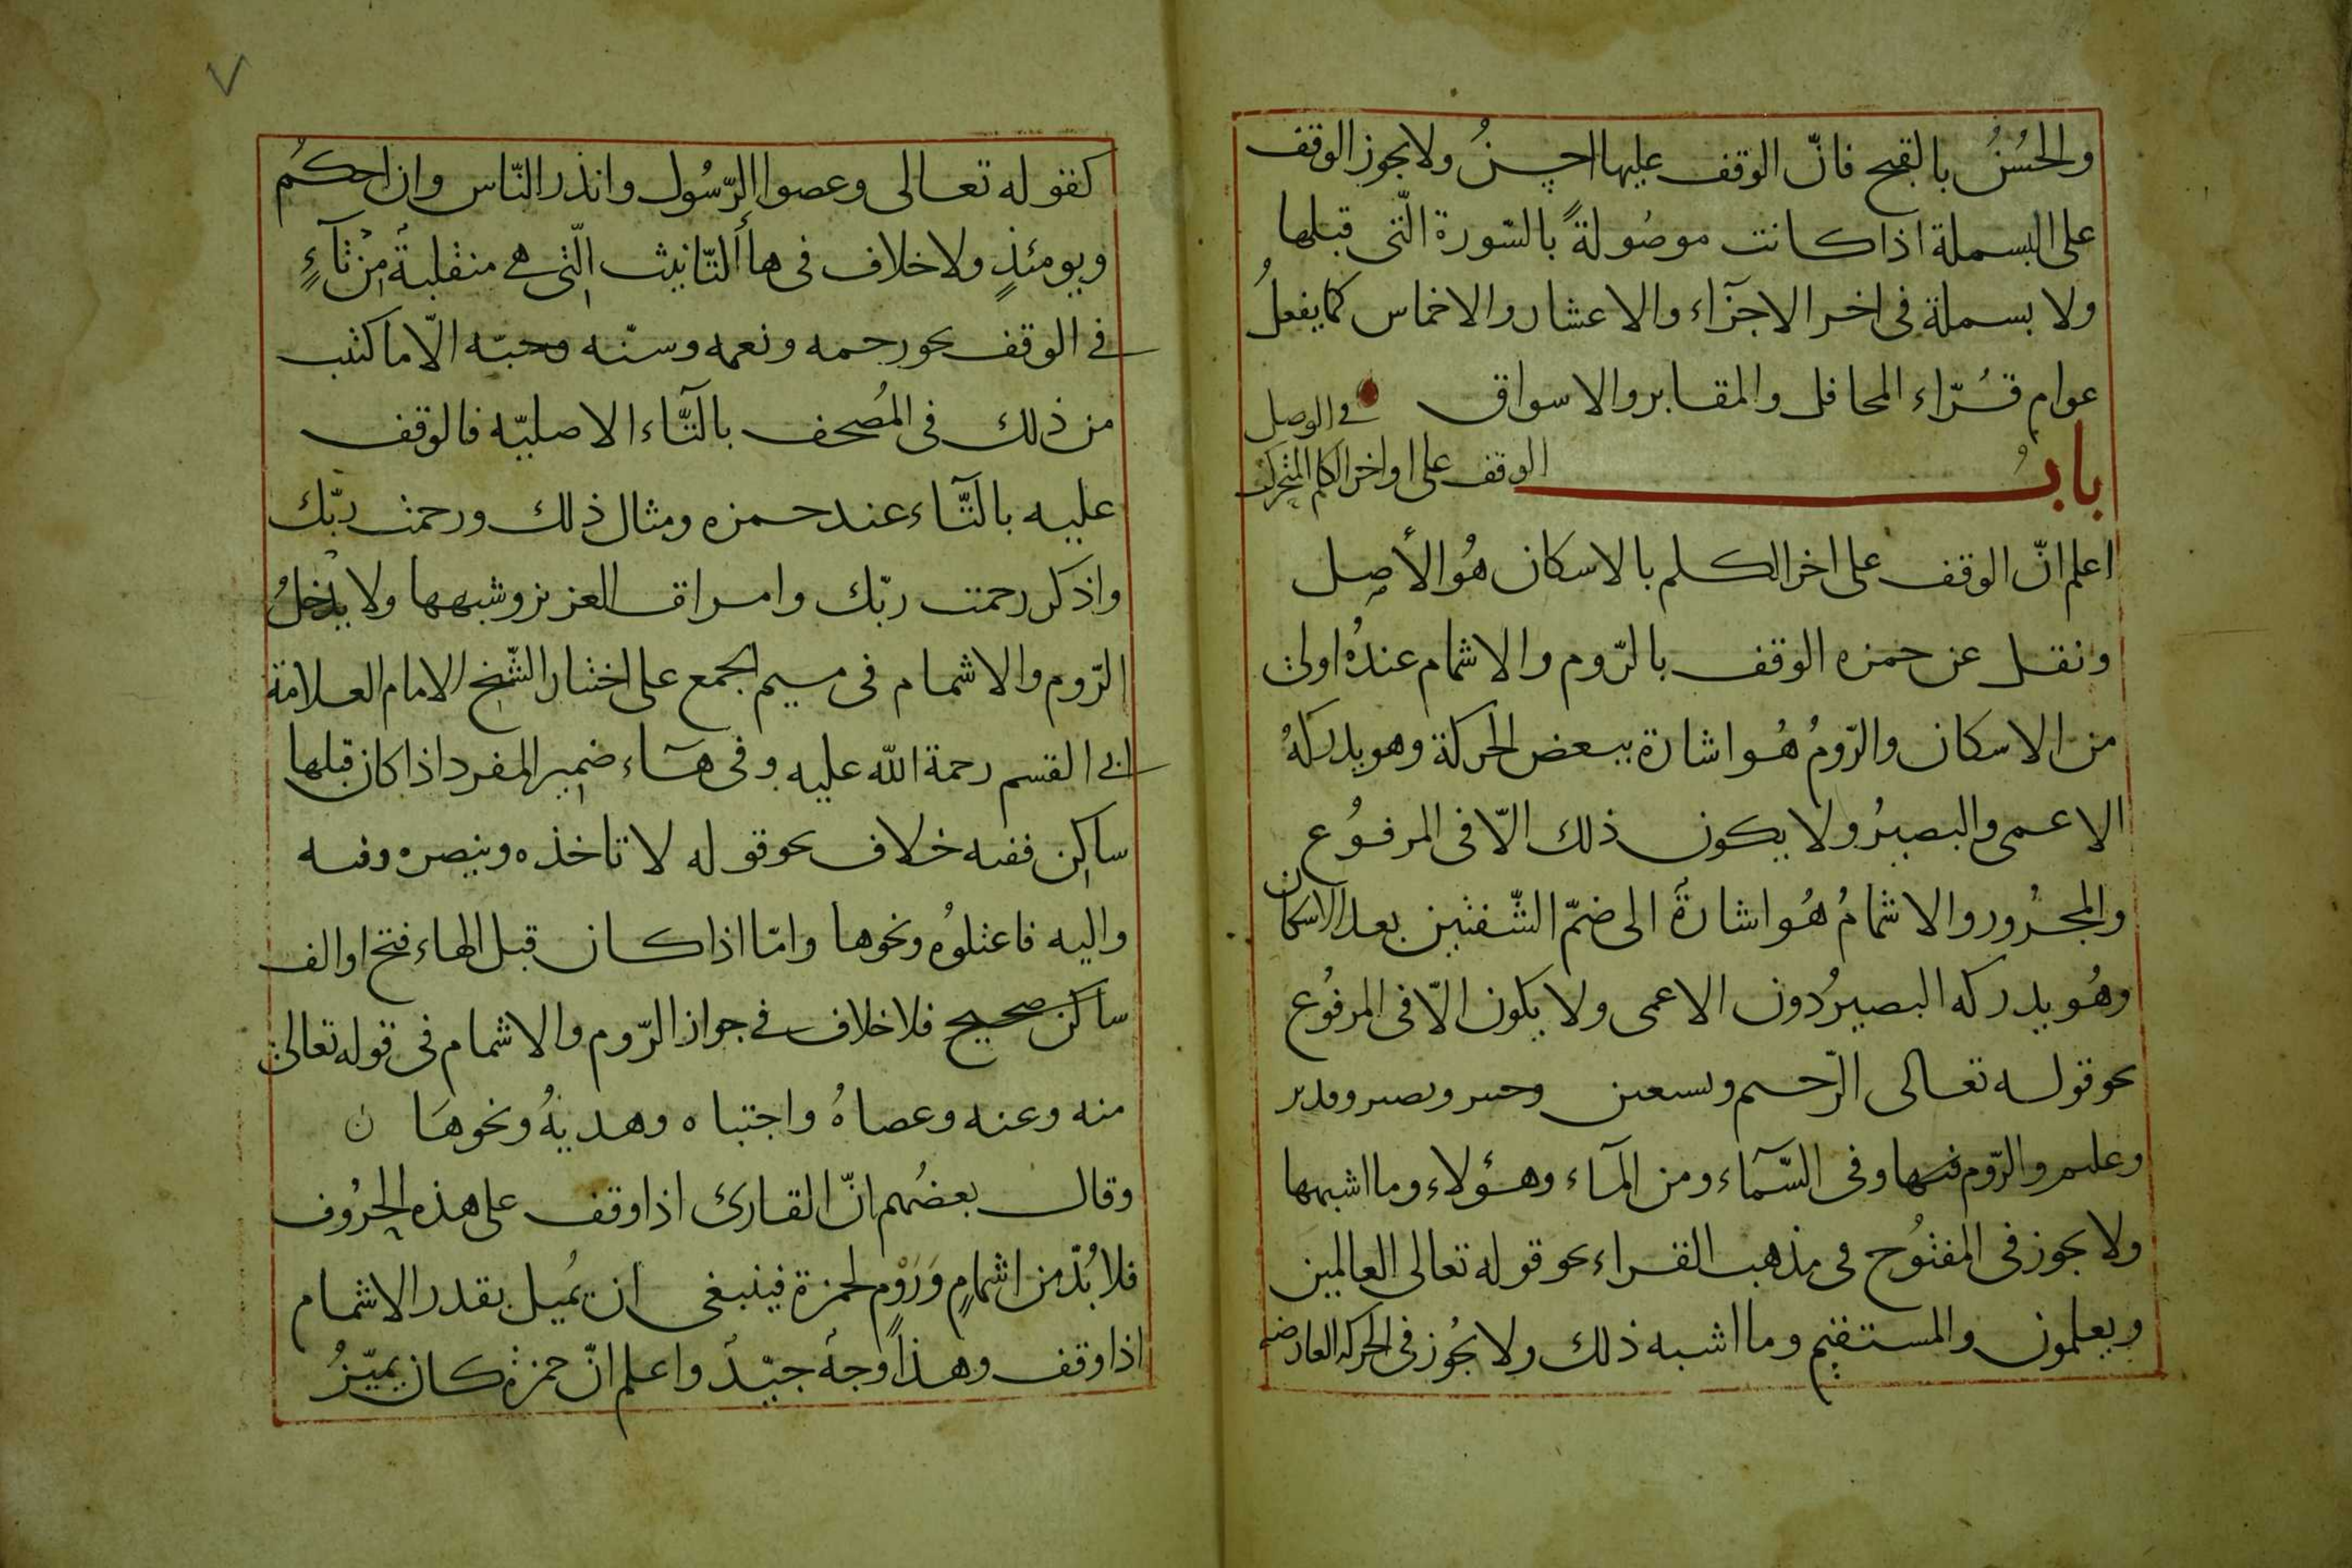 والحُسْنُ بالقبح فانّ الوقف عليها احسنُ ولا يجوز الوقف
على البسملة اذا كانت موصُولةً بالسّورة الّتى قبلها
ولا بسملة فى اخر الاجزآء والاعشار والاخماس كما يفعلُ
عوام قُرّاء المحافل والمقابر والاسواق
بابُ الوقف على اواخر الكلم المتحركة فى الوصل
اعلم انّ الوقف على اخر الكلم بالاسكان هُو الأصل
ونقل عن حمزه الوقف بالرّوم والاشمام عندهُ اولى
من الاسكان والرّومُ هُو اشارة ببعض الحركة وهو يدركهُ
الاعمى والبصيرُ ولا يكون ذلك الّا فى المرفوُع
والمجرُور والاشمامُ هُو اشارةً الى ضمّ الشّفتين بعد الاسكان
وهُو يدركه البصيرُ دون الاعمى ولا يكون الّا فى المرفوُع
نحو قوله تعالى الرّحيم ونستعين وخبير وبصير وقدير
وعليم والرّوم فيها وفى السّمآء ومن المآء وهؤلاء وما اشبهها
ولا يجوز فى المفتوُح فى مذهب القراء نحو قوله تعالى العالمين
ويعلمون والمستقيم وما اشبه ذلك ولا يجُوز فى الحركه العارضه
كقوله تعالى وعصوا الرّسُول وانذر النّاس وان احكُم
ويومئذٍ ولا خلاف فى هاأ التّانيث الّتى هى منقلبةً من تآءٍ
فى الوقف نحو رحمه ونعمه وسنّه وحبّه الّا ما كتب
من ذلك فى المُصحف بالتّآء الاصليّه فالوقف
عليه بالتّآء عند حمزه ومثال ذلك ورحمت ربّك
واذكر رحمت ربّك وامرات العزيز وشبهها ولا يدخلُ
الرّوم والاشمام فى ميم الجمع على اختيار الشّيخ الامام العلامة
ابى القسم رحمة الله عليه وفى هآء ضمير المفرد اذا كان قبلها
ساكن ففيه خلاف نحو قوله لا تاخذه وينصره وفيه
واليه فاعتلوُه ونحوها وامّا اذا كان قبل الهاء فتح او الف
ساكن صحيح فلا خلاف فى جواز الرّوم والاشمام فى قوله تعالى
منه وعنه وعصاهُ واجتباه وهديهُ ونحوهَا ن
وقال بعضُهم انّ القارئ اذا وقف على هذه الحرُوف
فلا بُدّ من اشمامٍ وَرَوْمٍ لحمزة فينبغى ان يُميل بقدر الاشمام
اذا وقف وهذا وجهً جيّدً واعلم انّ حمزةُ كان يميّزُ